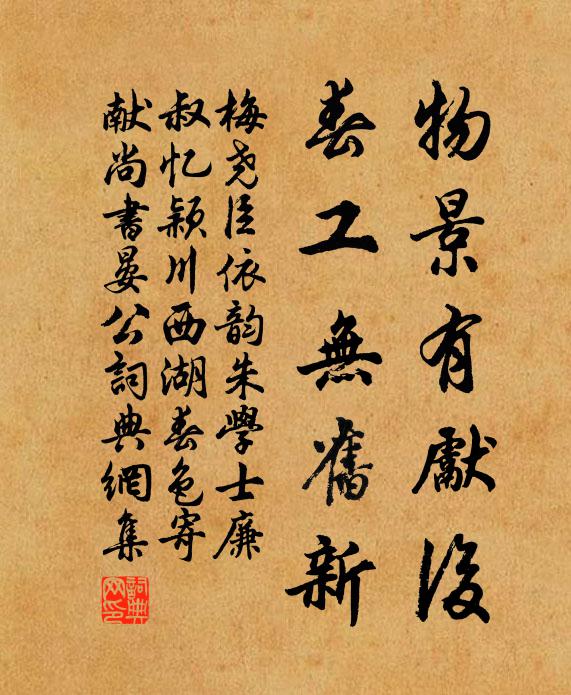 物景有獻後
春工無舊新
梅尧臣依韵朱學士廉
叔忆颖川西湖春色寄
献尚書晏公詞典網集
詞典網印